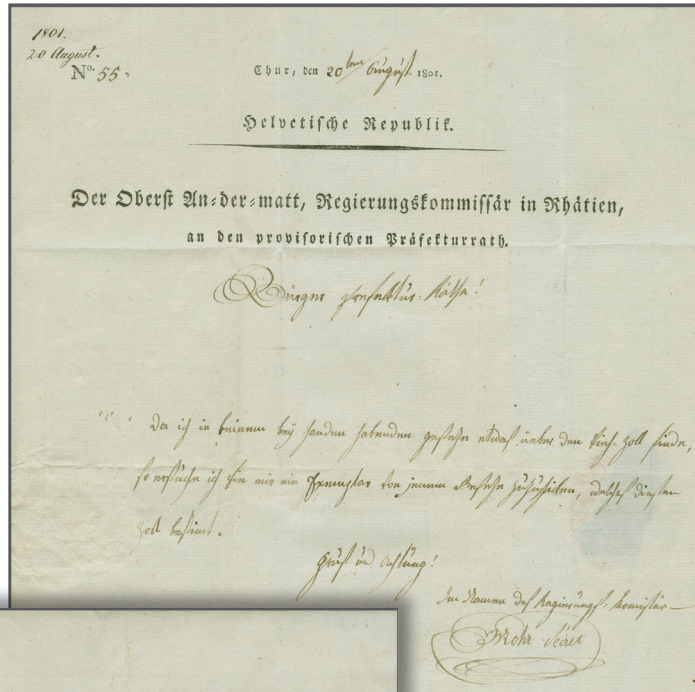 1801.
20 August.
No. 55.
Chur, den 20ten August 1801.
Helvetische Republik.
Der Oberst An-der-matt, Regierungskommissär in Rhätien,
an den provisorischen Präfekturrath.
Bürger Präfektur-Räthe!
Da ich in keinem bey handen habenden gesetze etwas ueber den Vieh-Zoll finde,
so ersuche ich sie mir ein Exemplar von jenem Gesetze zuzuschiken, welches diesen
Zoll bestimt.
Gruß und Achtung!
Im Namen des Regierungs-Komissär
Mohr Secret